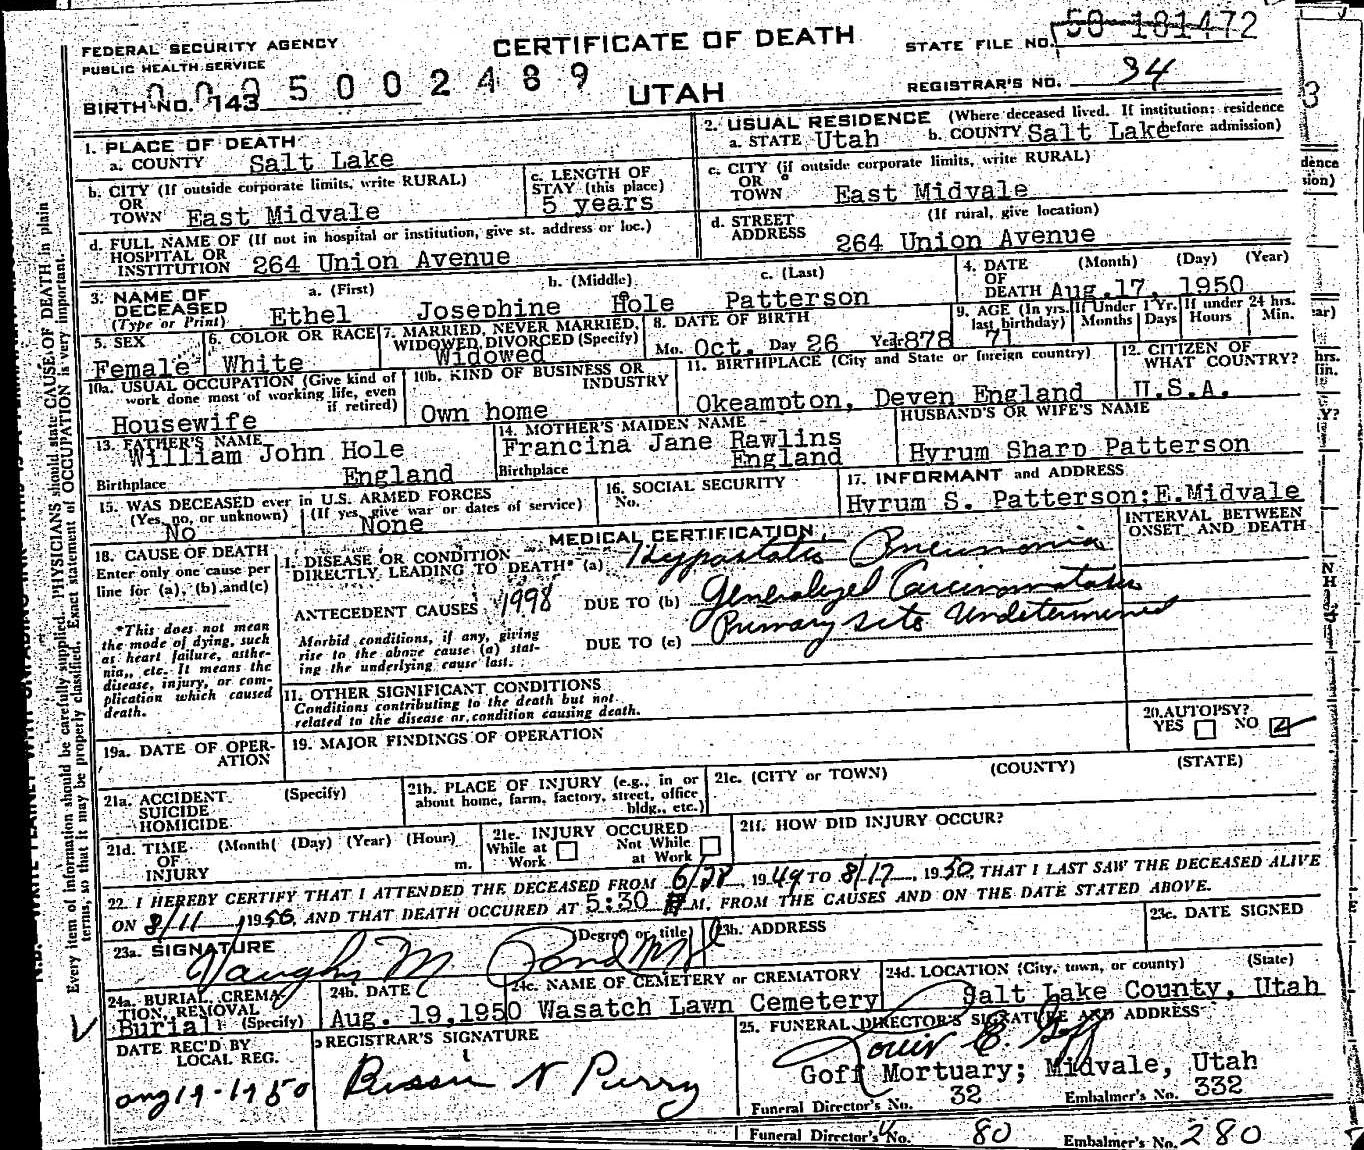 FEDERAL SECURITY AGENCY
PUBLIC HEALTH SERVICE
CERTIFICATE OF DEATH
STATE FILE NO. 50-181472
005002489
BIRTH NO. 143
UTAH
REGISTRAR'S NO. 34
1. PLACE OF DEATH
a. COUNTY Salt Lake
2. USUAL RESIDENCE (Where deceased lived. If institution: residence before admission)
a. STATE Utah b. COUNTY Salt Lake
b. CITY (If outside corporate limits, write RURAL)
OR
TOWN East Midvale
c. LENGTH OF
STAY (this place)
5 years
c. CITY (if outside corporate limits, write RURAL)
OR
TOWN East Midvale
d. FULL NAME OF (If not in hospital or institution, give st. address or loc.)
HOSPITAL OR
INSTITUTION 264 Union Avenue
d. STREET (If rural, give location)
ADDRESS 264 Union Avenue
3. NAME OF
DECEASED
(Type or Print)
a. (First) b. (Middle) c. (Last)
Ethel Josephine Hole Patterson
4. DATE (Month) (Day) (Year)
OF
DEATH Aug.17, 1950
5. SEX
Female
6. COLOR OR RACE
White
7. MARRIED, NEVER MARRIED,
WIDOWED, DIVORCED (Specify)
Widowed
8. DATE OF BIRTH
Mo. Oct. Day 26 Year 1878
9. AGE (In yrs. last birthday)
71
If Under 1 Yr.
Months Days
If under 24 hrs.
Hours Min.
10a. USUAL OCCUPATION (Give kind of
work done most of working life, even
if retired)
Housewife
10b. KIND OF BUSINESS OR
INDUSTRY
Own home
11. BIRTHPLACE (City and State or foreign country)
Okeampton, Deven England
12. CITIZEN OF
WHAT COUNTRY?
U.S.A.
13. FATHER'S NAME
William John Hole
Birthplace England
14. MOTHER'S MAIDEN NAME
Francina Jane Rawlins
Birthplace England
HUSBAND'S OR WIFE'S NAME
Hyrum Sharp Patterson
15. WAS DECEASED ever in U.S. ARMED FORCES
(Yes, no, or unknown) (If yes, give war or dates of service)
No None
16. SOCIAL SECURITY
No.
17. INFORMANT and ADDRESS
Hyrum S. Patterson;E.Midvale
MEDICAL CERTIFICATION
INTERVAL BETWEEN
ONSET AND DEATH
18. CAUSE OF DEATH
Enter only one cause per
line for (a), (b) and (c)
*This does not mean
the mode of dying, such
as heart failure, asthe-
nia,, etc. It means the
disease, injury, or com-
plication which caused
death.
I. DISEASE OR CONDITION
DIRECTLY LEADING TO DEATH* (a) Hypostatic Pneumonia
ANTECEDENT CAUSES 1998 DUE TO (b) Generalized Carcinomatosis
Morbid conditions, if any, giving
rise to the above cause (a) stat-
ing the underlying cause last.
DUE TO (c) Primary site Undetermined
11. OTHER SIGNIFICANT CONDITIONS
Conditions contributing to the death but not
related to the disease or condition causing death.
19a. DATE OF OPER-
ATION
19. MAJOR FINDINGS OF OPERATION
20. AUTOPSY?
YES NO
21a. ACCIDENT (Specify)
SUICIDE
HOMICIDE
21b. PLACE OF INJURY (e.g., in or
about home, farm, factory, street, office
bldg., etc.)
21c. (CITY or TOWN) (COUNTY) (STATE)
21d. TIME (Month( (Day) (Year) (Hour)
OF
INJURY m.
21e. INJURY OCCURED
While at Work Not While at Work
21f. HOW DID INJURY OCCUR?
22. I HEREBY CERTIFY THAT I ATTENDED THE DECEASED FROM 6/28, 1949 TO 8/17, 1950, THAT I LAST SAW THE DECEASED ALIVE
ON 8/11 1950, AND THAT DEATH OCCURED AT 5:30 M. FROM THE CAUSES AND ON THE DATE STATED ABOVE.
23a. SIGNATURE (Degree or title)
Vaughn M. Pond MD
23b. ADDRESS
23c. DATE SIGNED
24a. BURIAL, CREMA-
TION, REMOVAL
Burial (Specify)
24b. DATE
Aug. 19,1950
24c. NAME OF CEMETERY or CREMATORY
Wasatch Lawn Cemetery
24d. LOCATION (City, town, or county) (State)
Salt Lake County, Utah
DATE REC'D BY
LOCAL REG.
Aug 19-1950
REGISTRAR'S SIGNATURE
Bessie N Perry
25. FUNERAL DIRECTOR'S SIGNATURE AND ADDRESS
Louis E. Goff
Goff Mortuary; Midvale, Utah
Funeral Director's No. 32 Embalmer's No. 332
Funeral Director's No. 80 Embalmer's No. 280
Every item of information should be carefully supplied. PHYSICIANS should state CAUSE OF DEATH in plain
terms, so that it may be properly classified. Exact statement of OCCUPATION is very important.